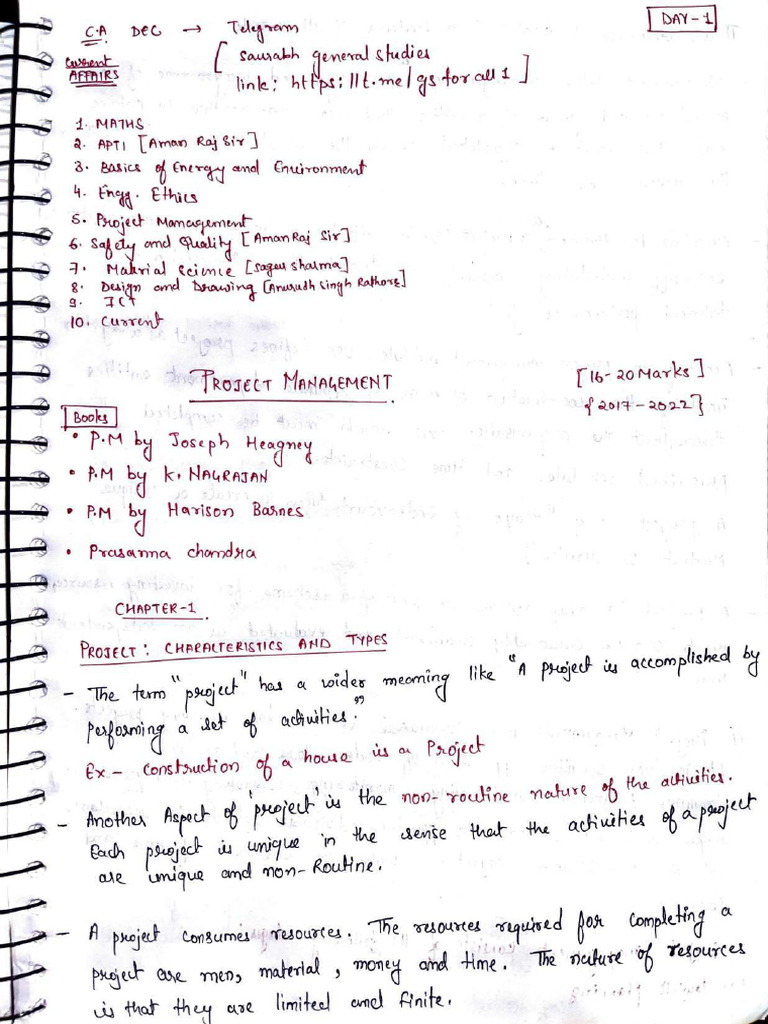 DAY-1
C.A DEC → Telegram
Current AFFAIRS
[ saurabh general studies
link: https://t.me/gsforall1 ]
1. MATHS
2. APTI [Aman Raj Sir]
3. Basics of Energy and Environment
4. Engg. Ethics
5. Project Management
6. Safety and Quality [Aman Raj Sir]
7. Material Science [Sagar Sharma]
8. Design and Drawing [Anirudh Singh Rathore]
9. ICT
10. Current
PROJECT MANAGEMENT
[16-20 Marks]
{2017-2022}
Books
• P.M by Joseph Heagney
• P.M by K. NAGRAJAN
• P.M by Harison Barnes
• Prasanna chandra
CHAPTER-1
PROJECT: CHARACTERISTICS AND TYPES
- The term "project" has a wider meaning like "A project is accomplished by
performing a set of activities."
Ex- Construction of a house is a Project
- Another Aspect of project is the non-routine nature of the activities.
Each project is unique in the sense that the activities of a project
are unique and non-Routine.
- A project consumes resources. The resources required for completing a
project are men, material, money and time. The nature of resources
is that they are limited and finite.